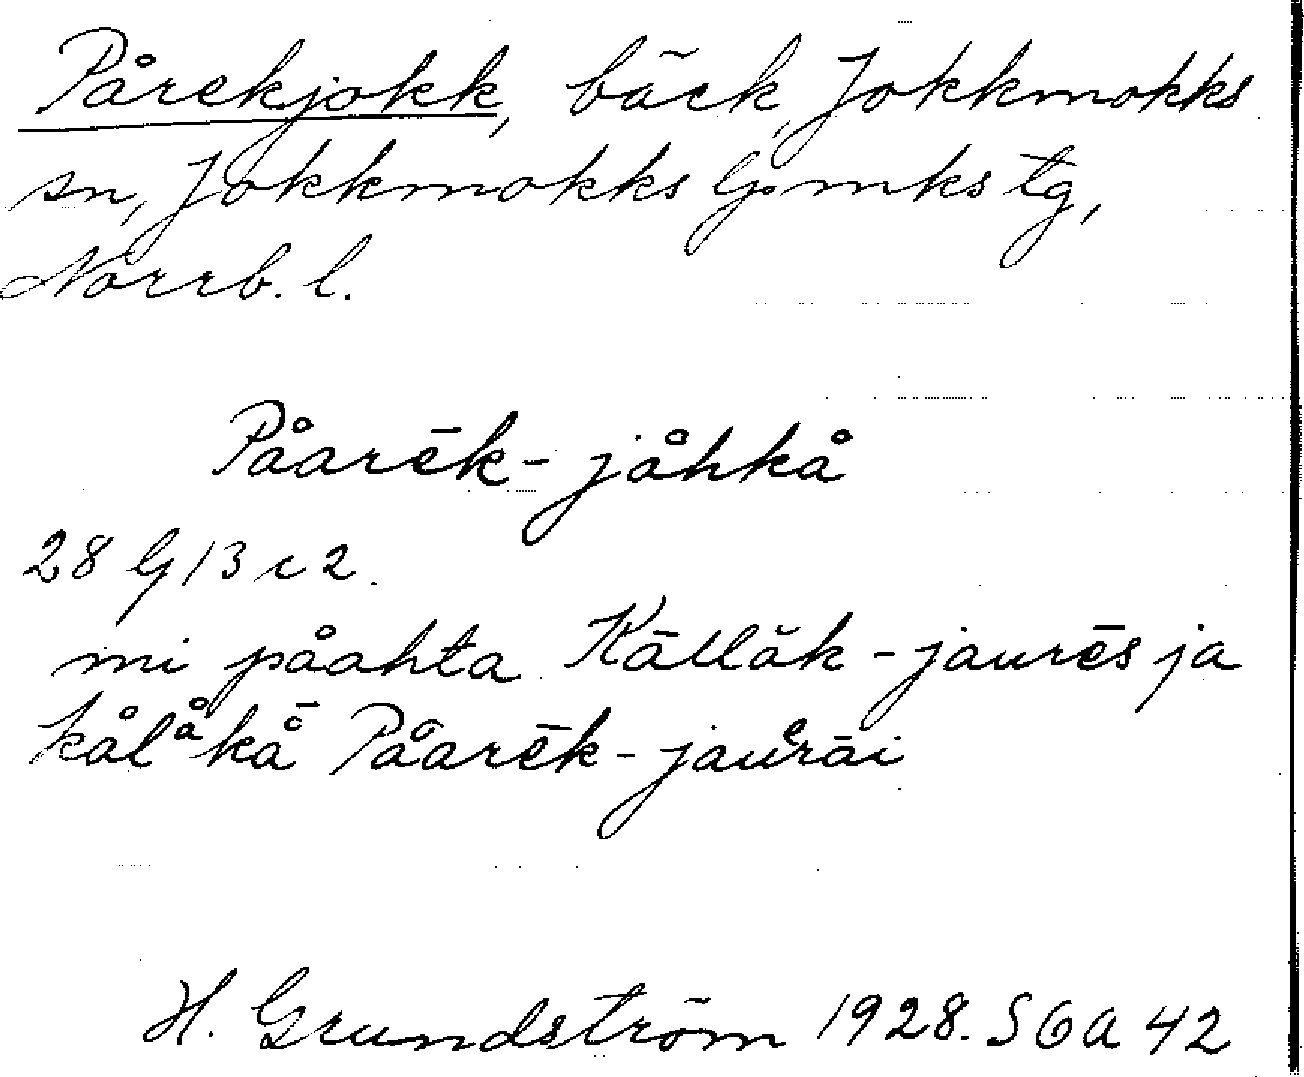 Pårekjokk, bäck, Jokkmokks
sn, Jokkmokks G:mks tg,
Norrb. l.
Påarēk-jåhkå
28 G 13 c 2.
mi påahta Kāllăk-jaurēs ja
kålåkå̄ Påarēk-jaurāi
H. Grundström 1928. SOA 42